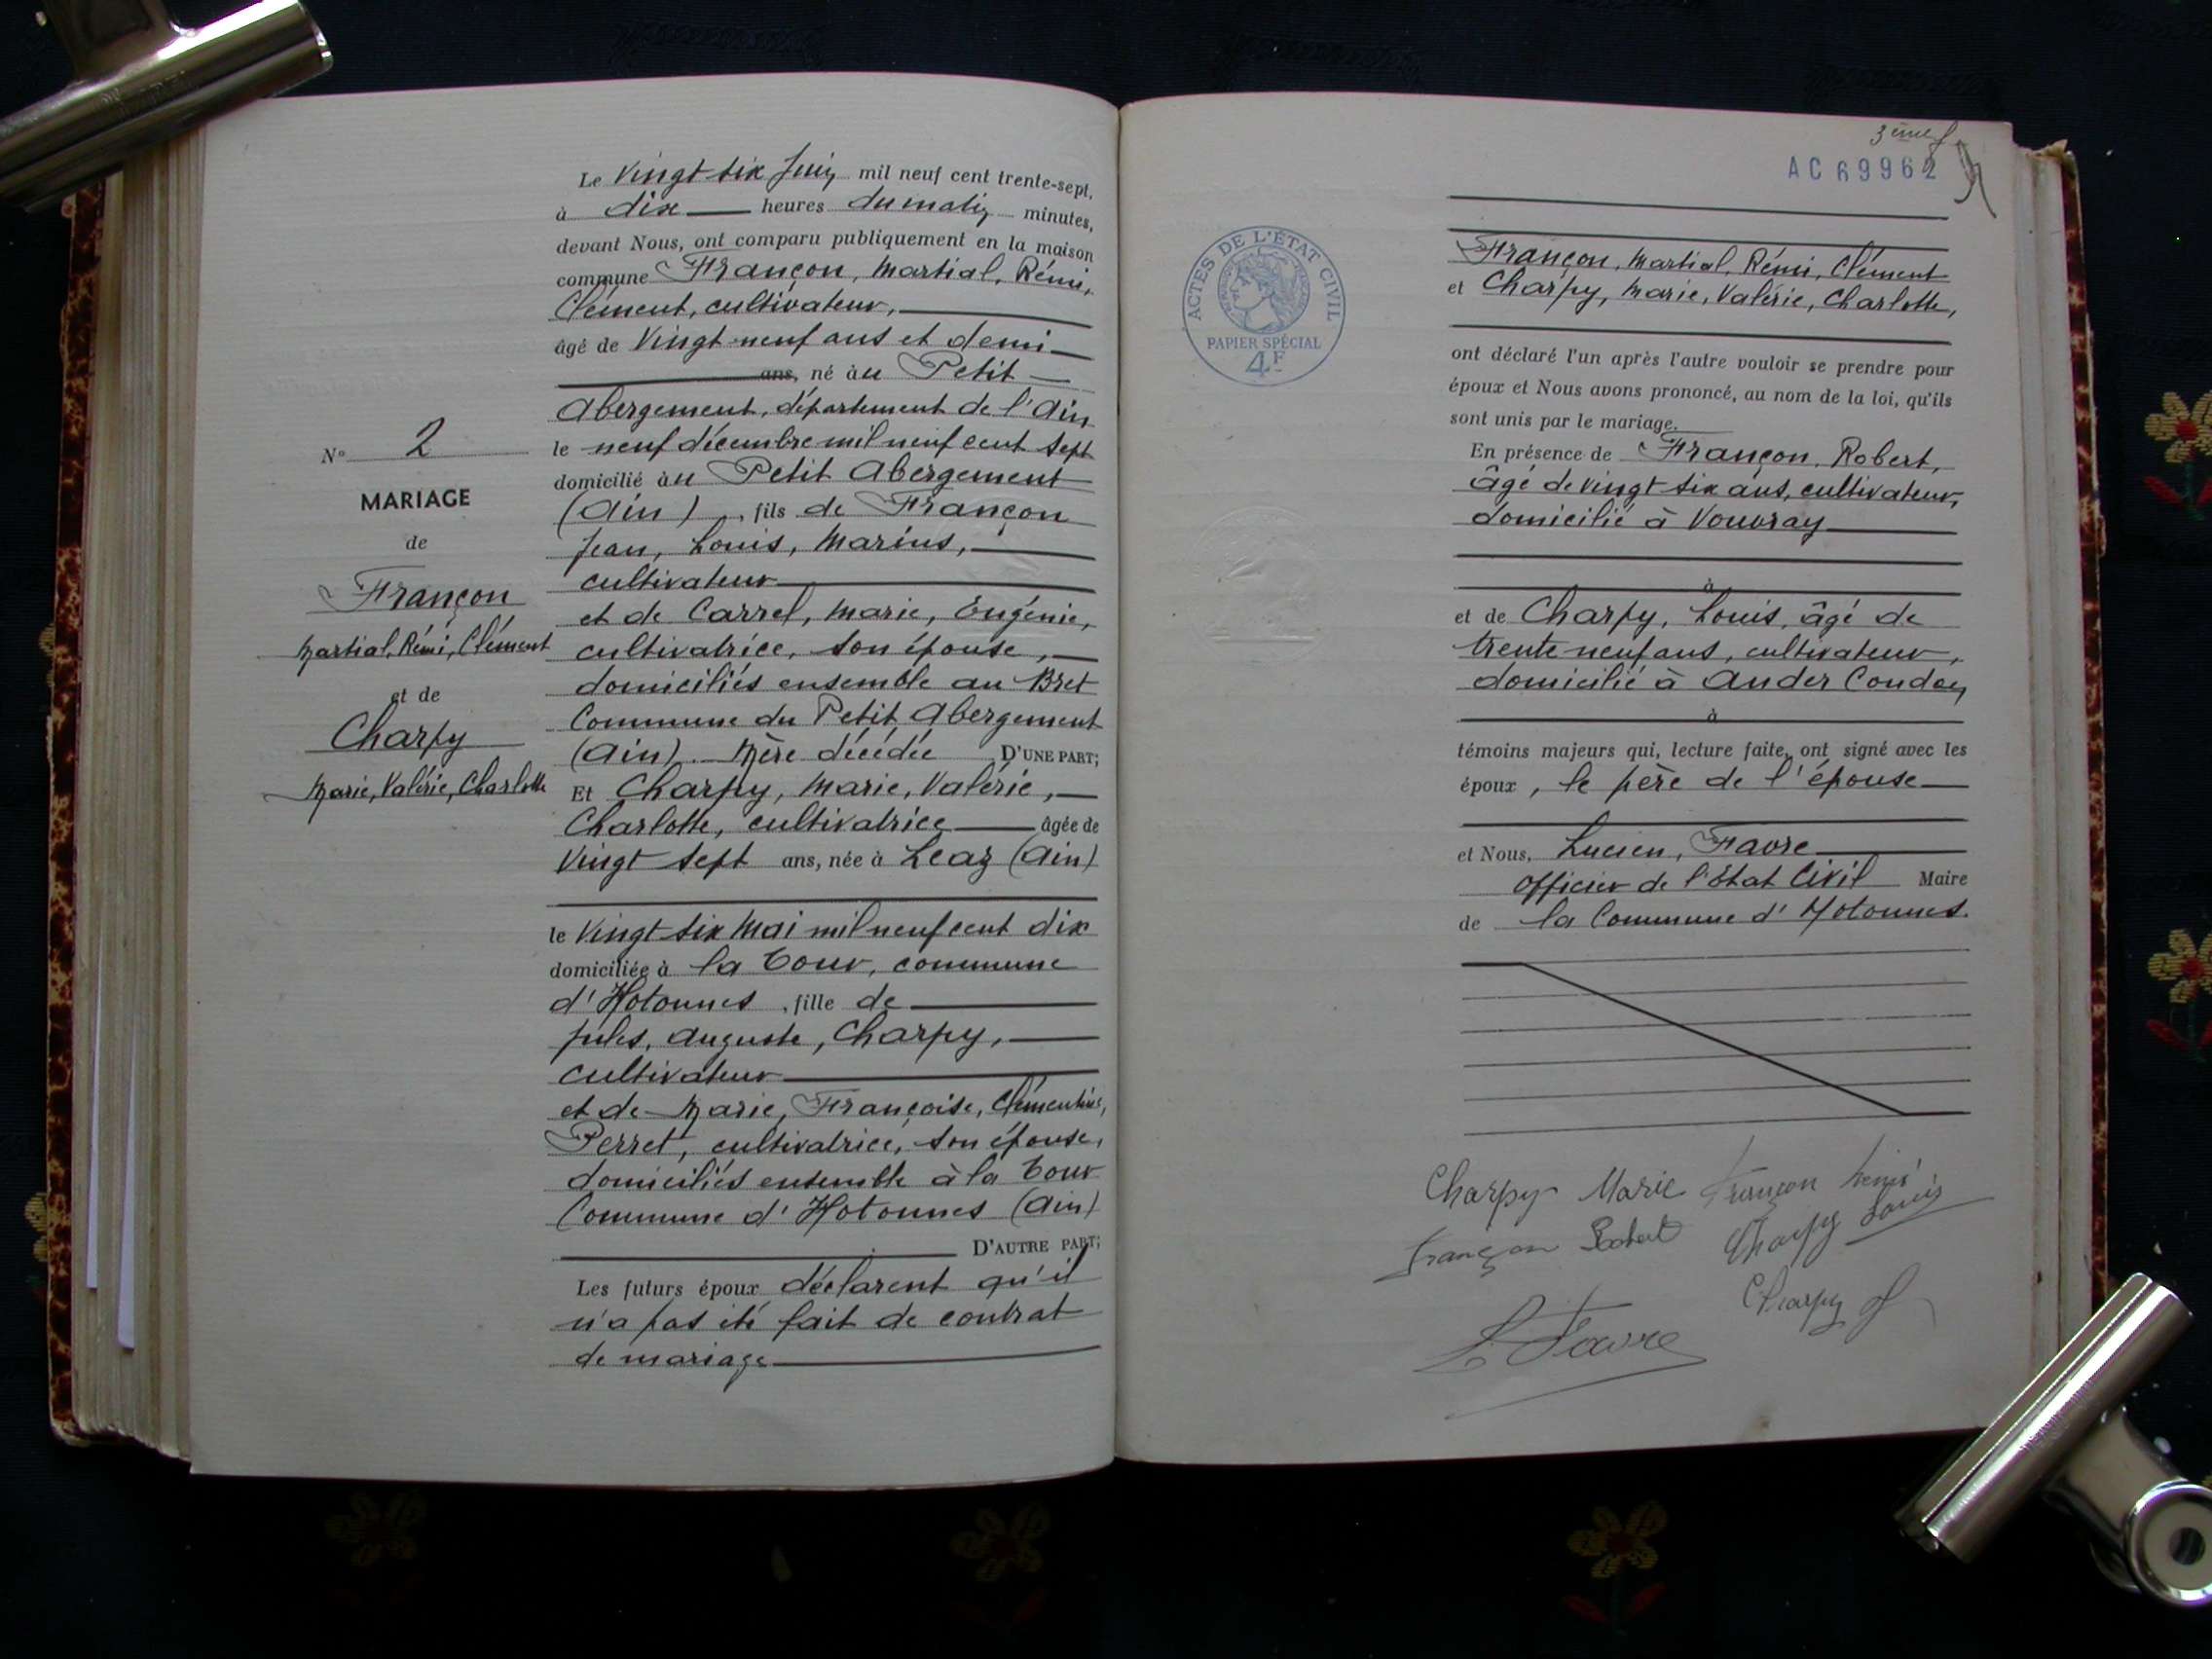 N° 2
MARIAGE
de
Françon
Martial, Rémi, Clément
et de
Charpy
Marie, Valérie, Charlotte
Le vingt six Juin mil neuf cent trente-sept,
à dix heures du matin minutes,
devant Nous, ont comparu publiquement en la maison
commune Françon, Martial, Rémi,
Clément, cultivateur,
âgé de vingt-neuf ans et demi
ans, né àu Petit
Abergement, département de l'Ain
le neuf décembre mil neuf cent sept
domicilié àu Petit Abergement
(Ain), fils de Françon
Jean, Louis, Marius,
cultivateur
et de Carrel, Marie, Eugénie,
cultivatrice, son épouse,
domiciliés ensemble au Bret
Commune du Petit Abergement
(Ain). Mère décédée D'UNE PART;
Et Charpy, Marie, Valérie,
Charlotte, cultivatrice âgée de
vingt sept ans, née à Léaz (Ain)
le vingt six Mai mil neuf cent dix
domiciliée à la Tour, commune
d'Hotonnes, fille de
Jules, Auguste, Charpy,
cultivateur
et de Marie, Françoise, Clémentine,
Perret, cultivatrice, son épouse,
domiciliés ensemble à la Tour
Commune d'Hotonnes (Ain)
D'AUTRE PART;
Les futurs époux déclarent qu'il
n'a pas été fait de contrat
de mariage
3ème f
AC 69962
ACTES DE L'ÉTAT CIVIL
PAPIER SPÉCIAL
4F
Françon, Martial, Rémi, Clément
et Charpy, Marie, Valérie, Charlotte,
ont déclaré l'un après l'autre vouloir se prendre pour
époux et Nous avons prononcé, au nom de la loi, qu'ils
sont unis par le mariage.
En présence de Françon, Robert,
âgé de vingt six ans, cultivateur,
domicilié à Vouvray
à
et de Charpy, Louis, âgé de
trente neuf ans, cultivateur,
domicilié à Ander Condon
à
témoins majeurs qui, lecture faite, ont signé avec les
époux, le père de l'épouse
et Nous, Lucien, Favre
officier de l'état Civil Maire
de la Commune d'Hotonnes.
Charpy Marie Françon Rémi
Françon Robert Charpy Louis
Charpy J
L Favre